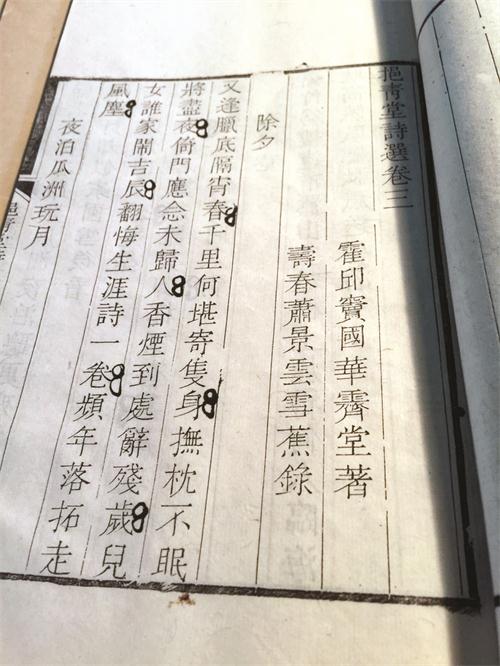 挹青堂詩選卷三
霍邱竇國華霽堂著
壽春蕭景雲雪蕉錄
除夕
又逢臘底隔宵春千里何堪寄隻身撫枕不眠
將盡夜倚門應念未歸人香煙到處辭殘歲兒
女誰家鬧吉辰翻悔生涯詩一卷頻年落拓走
風塵
夜泊瓜洲玩月